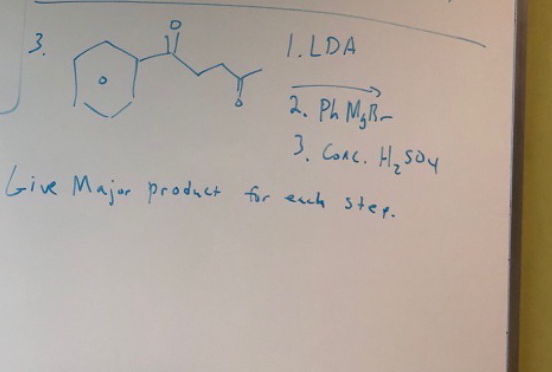 3.
O
O
O
1. LDA
2. Ph MgBr
3. Conc. H₂SO₄
Give Major product for each step.